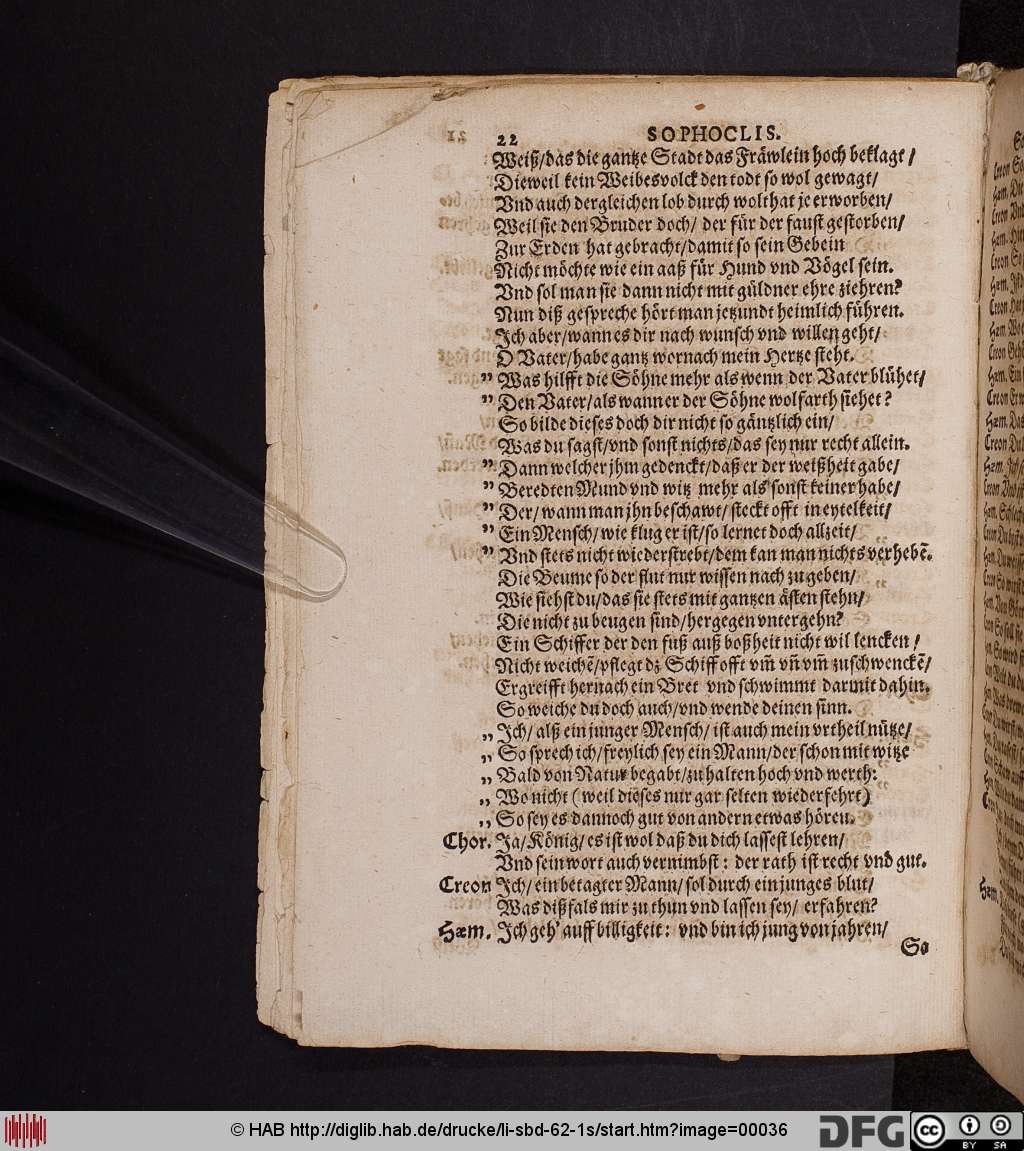 22 SOPHOCLIS.
Weiß/das die gantze Stadt das Fräwlein hoch beklagt/
Dieweil kein Weibesvolck den todt so wol gewagt/
Vnd auch dergleichen lob durch wolthat je erworben/
Weil sie den Bruder doch/ der für der faust gestorben/
Zur Erden hat gebracht/damit so sein Gebein
Nicht möchte wie ein aaß für Hund vnd Vögel sein.
Vnd sol man sie dann nicht mit güldner ehre ziehren?
Nun diß gespreche hört man jetzundt heimlich führen.
Ich aber/wann es dir nach wunsch vnd willen geht/
O Vater/habe gantz wornach mein Hertze steht.
” Was hilfft die Söhne mehr als wenn der Vater blühet/
” Den Vater/als wann er der Söhne wolfarth siehet?
So bilde dieses doch dir nicht so gäntzlich ein/
Was du sagst/vnd sonst nichts/das sey nur recht allein.
” Dann welcher jhm gedenckt/daß er der weißheit gabe/
” Beredten Mund vnd witz mehr als sonst keiner habe/
” Der/wann man jhn beschawt/steckt offt in eytelkeit/
” Ein Mensch/wie klug er ist/so lernet doch allzeit/
” Vnd stets nicht wiederstrebt/dem kan man nichts verhebẽ.
Die Beume so der flut nur wissen nach zu geben/
Wie siehst du/das sie stets mit gantzen ästen stehn/
Die nicht zu beugen sind/hergegen vntergehn?
Ein Schiffer der den fuß auß boßheit nicht wil lencken/
Nicht weichẽ/pflegt dz Schiff offt vm̃ vñ vm̃ zuschwenckẽ/
Ergreifft hernach ein Bret vnd schwimmt darmit dahin.
So weiche du doch auch/vnd wende deinen sinn.
„ Ich/ alß ein junger Mensch/ ist auch mein vrtheil nütze/
„ So sprech ich/freylich sey ein Mann/der schon mit witze
„ Bald von Natur begabt/zu halten hoch vnd werth:
„ Wo nicht (weil dieses mir gar selten wiederfehrt)
„ So sey es dannoch gut von andern etwas hören.
Chor. Ja/König/es ist wol daß du dich lassest lehren/
Vnd sein wort auch vernimbst: der rath ist recht vnd gut.
Creon Ich/ein betagter Mann/sol durch ein junges blut/
Was dißfals mir zu thun vnd lassen sey/ erfahren?
Hæm. Ich geh' auff billigkeit: vnd bin ich jung von jahren/
So
© HAB http://diglib.hab.de/drucke/li-sbd-62-1s/start.htm?image=00036
DFG
cc BY SA